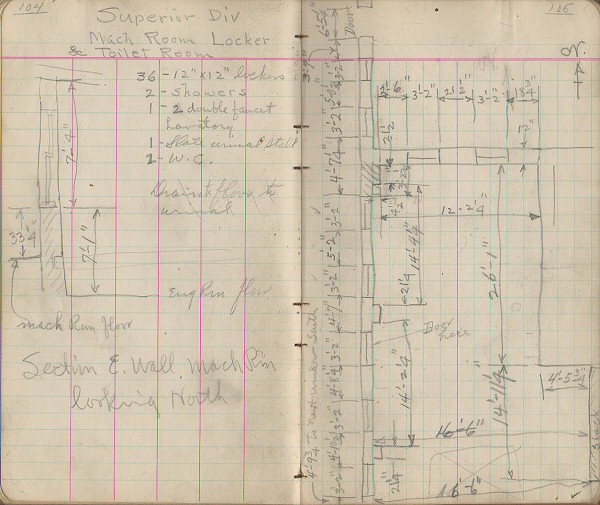 104
Superior Div
Mach Room Locker
& Toilet Room
36 - 12" x 12" lockers
2 - Showers
1 - 2 double faucet
Lavatory
1 - Slate urinal stall
2 - W.C.
Drain floor to
urinal
7'-4"
33 1/4"
7'-1"
Eng Rm floor
Mach Rm floor
Section E. Wall Mach Rm
looking North
106
N.
Door
6'-5 1/4"
3'-2"
3'-2"
4'-7 1/4"
3'-2"
5'-2"
3'-2"
4'-7"
3'-2"
4'-8 1/4"
3'-2"
3'-2"
4'-9 3/4" To next window South
3'-2"
21 1/2"
3'-2"
18 3/4"
12"
21 1/2
12'-2 1/4"
14'-4 1/4"
21 1/4
26'-1"
Door
here
14'-2 1/4"
14'-11 1/4"
4'-5 3/4"
16'-6"
21 1/4"
16'-6"